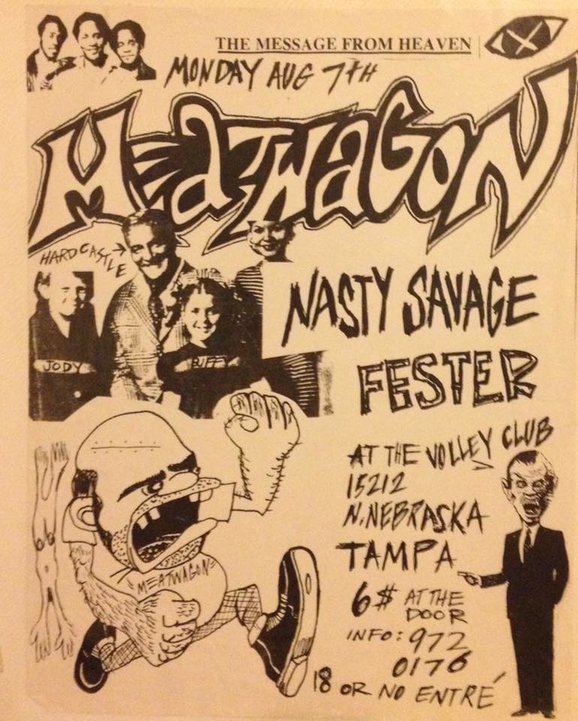 THE MESSAGE FROM HEAVEN
MONDAY AUG 7TH
MEATWAGON
HARDCASTLE
JODY
BUFFY
NASTY SAVAGE
FESTER
AT THE VOLLEY CLUB
15212
N. NEBRASKA
TAMPA
6$ AT THE
DOOR
INFO: 972
0176
18 OR NO ENTRÉ
MEATWAGON